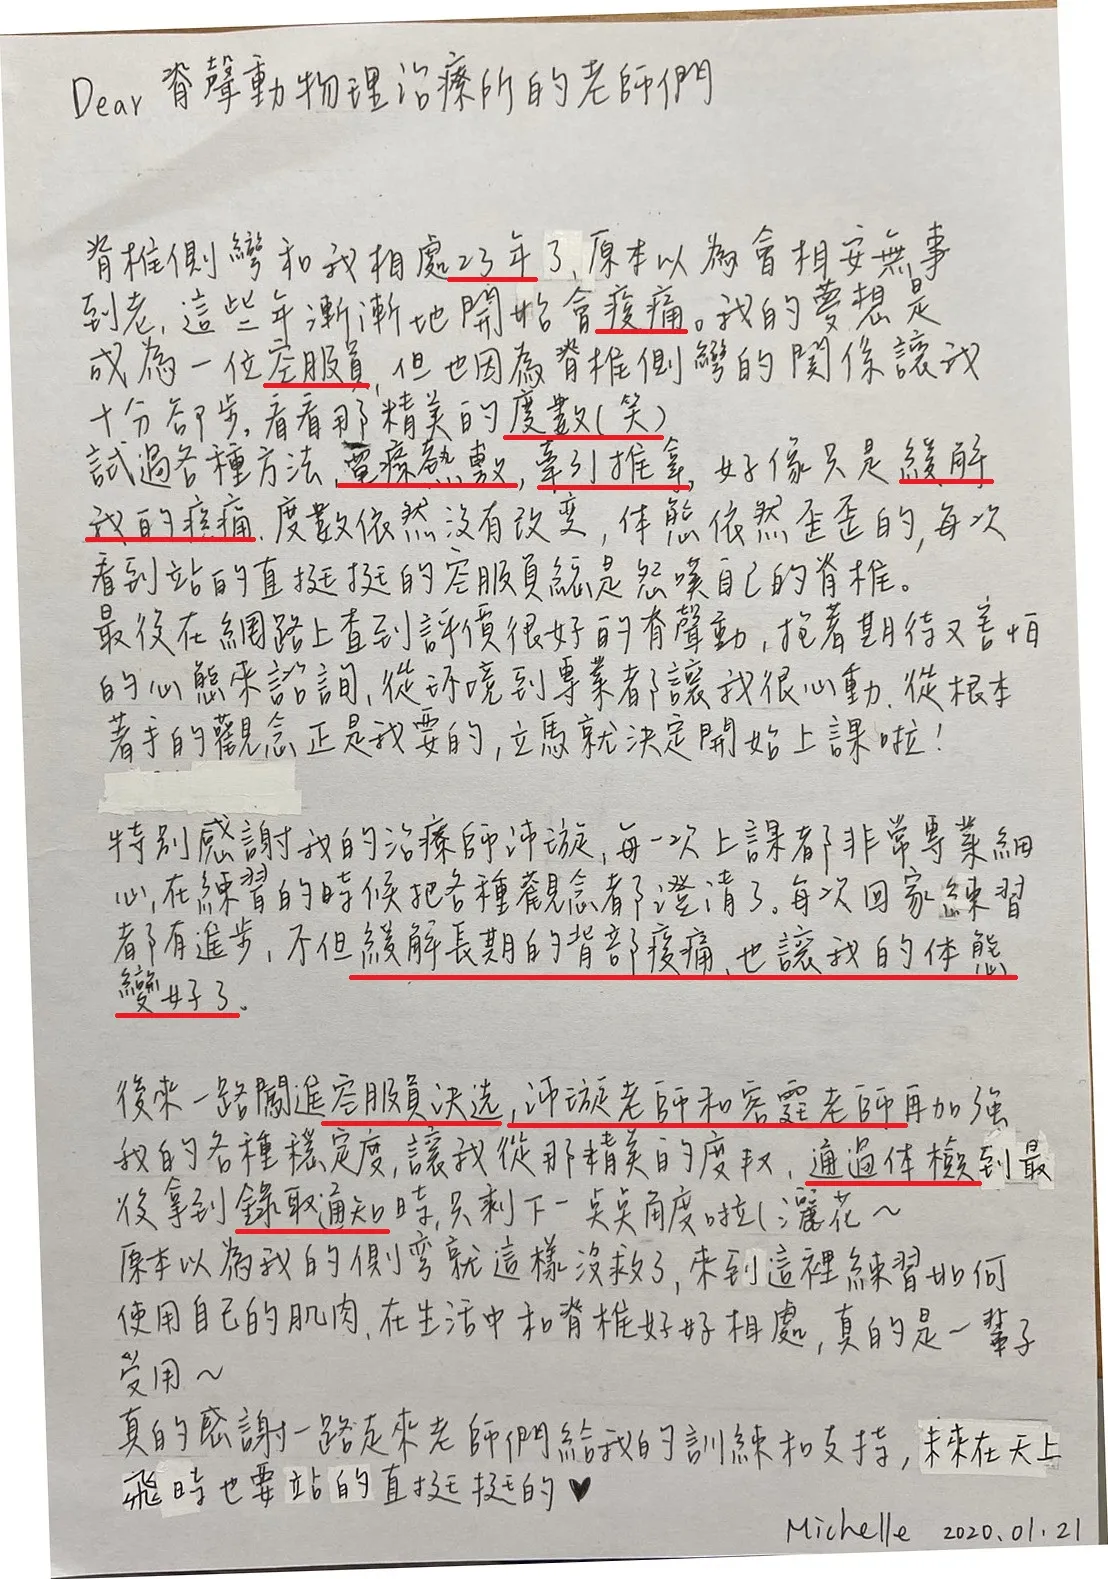 Dear 脊聲動物理治療所的老師們
脊椎側彎和我相處23年了,原本以為會相安無事
到老,這些年漸漸地開始會痠痛。我的夢想是
成為一位空服員,但也因為脊椎側彎的關係讓我
十分卻步,看看那精美的度數(笑)
試過各種方法,電療熱敷,牽引推拿,好像只是緩解
我的痠痛.度數依然沒有改變,体態依然歪歪的,每次
看到站的直挺挺的空服員總是怨嘆自己的脊椎。
最後在網路上查到評價很好的脊聲動,抱著期待又害怕
的心態來諮詢,從环境到專業都讓我很心動.從根本
著手的觀念正是我要的,立馬就決定開始上課啦!
特別感謝我的治療師沛漩,每一次上課都非常專業細
心,在練習的時候把各種觀念都澄清了。每次回家練習
都有進步,不但緩解長期的背部痠痛,也讓我的体態
變好了。
後來一路闖進空服員決选,沛漩老師和容霆老師再加強
我的各種穩定度,讓我從那精美的度数,通過体檢到最
後拿到錄取通知時,只剩下一點點角度啦(灑花~
原本以為我的側彎就這樣沒救了,來到這裡練習如何
使用自己的肌肉,在生活中和脊椎好好相處,真的是一輩子
受用~
真的感謝一路走來老師們給我的訓練和支持,未來在天上
飛時也要站的直挺挺的♥
Michelle 2020.01.21